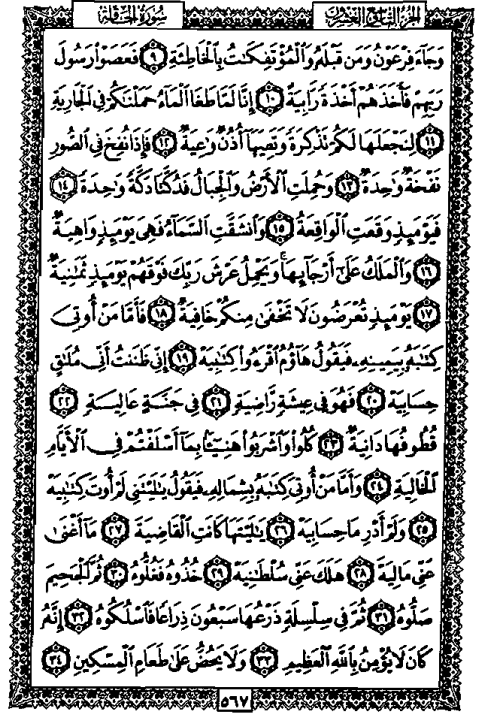 سُورَةُ الحَاقَّةِ
الجُزْءُ التَّاسِعُ وَالعِشْرُونَ
وَجَآءَ فِرْعَوْنُ وَمَن قَبْلَهُۥ وَٱلْمُؤْتَفِكَٰتُ بِٱلْخَاطِئَةِ ٩ فَعَصَوْا۟ رَسُولَ
رَبِّهِمْ فَأَخَذَهُمْ أَخْذَةً رَّابِيَةً ١٠ إِنَّا لَمَّا طَغَا ٱلْمَآءُ حَمَلْنَٰكُمْ فِى ٱلْجَارِيَةِ
١١ لِنَجْعَلَهَا لَكُمْ تَذْكِرَةً وَتَعِيَهَآ أُذُنٌ وَٰعِيَةٌ ١٢ فَإِذَا نُفِخَ فِى ٱلصُّورِ
نَفْخَةٌ وَٰحِدَةٌ ١٣ وَحُمِلَتِ ٱلْأَرْضُ وَٱلْجِبَالُ فَدُكَّتَا دَكَّةً وَٰحِدَةً ١٤
فَيَوْمَئِذٍ وَقَعَتِ ٱلْوَاقِعَةُ ١٥ وَٱنشَقَّتِ ٱلسَّمَآءُ فَهِىَ يَوْمَئِذٍ وَاهِيَةٌ
١٦ وَٱلْمَلَكُ عَلَىٰٓ أَرْجَآئِهَا ۚ وَيَحْمِلُ عَرْشَ رَبِّكَ فَوْقَهُمْ يَوْمَئِذٍ ثَمَٰنِيَةٌ
١٧ يَوْمَئِذٍ تُعْرَضُونَ لَا تَخْفَىٰ مِنكُمْ خَافِيَةٌ ١٨ فَأَمَّا مَنْ أُوتِىَ
كِتَٰبَهُۥ بِيَمِينِهِۦ فَيَقُولُ هَآؤُمُ ٱقْرَءُوا۟ كِتَٰبِيَهْ ١٩ إِنِّى ظَنَنتُ أَنِّى مُلَٰقٍ
حِسَابِيَهْ ٢٠ فَهُوَ فِى عِيشَةٍ رَّاضِيَةٍ ٢١ فِى جَنَّةٍ عَالِيَةٍ ٢٢
قُطُوفُهَا دَانِيَةٌ ٢٣ كُلُوا۟ وَٱشْرَبُوا۟ هَنِيٓـًٔۢا بِمَآ أَسْلَفْتُمْ فِى ٱلْأَيَّامِ
ٱلْخَالِيَةِ ٢٤ وَأَمَّا مَنْ أُوتِىَ كِتَٰبَهُۥ بِشِمَالِهِۦ فَيَقُولُ يَٰلَيْتَنِى لَمْ أُوتَ كِتَٰبِيَهْ
٢٥ وَلَمْ أَدْرِ مَا حِسَابِيَهْ ٢٦ يَٰلَيْتَهَا كَانَتِ ٱلْقَاضِيَةَ ٢٧ مَآ أَغْنَىٰ
عَنِّى مَالِيَهْ ٢٨ هَلَكَ عَنِّى سُلْطَٰنِيَهْ ٢٩ خُذُوهُ فَغُلُّوهُ ٣٠ ثُمَّ ٱلْجَحِيمَ
صَلُّوهُ ٣١ ثُمَّ فِى سِلْسِلَةٍ ذَرْعُهَا سَبْعُونَ ذِرَاعًا فَٱسْلُكُوهُ ٣٢ إِنَّهُۥ
كَانَ لَا يُؤْمِنُ بِٱللَّهِ ٱلْعَظِيمِ ٣٣ وَلَا يَحُضُّ عَلَىٰ طَعَامِ ٱلْمِسْكِينِ ٣٤
٥٦٧